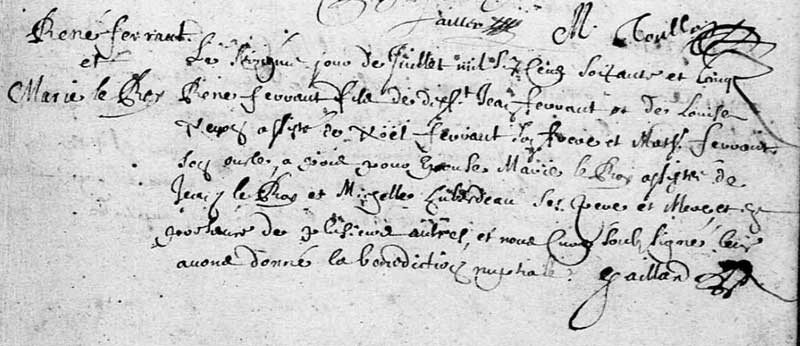 M. Toullo
René ferrant. Le sixième jour de Juillet mil six cens soixante et cinq
et
Marie le Roy René ferrant fils de defft Jean ferrant et de Louise
assisté de Noël ferrant son frere et Math. ferrant
son oncle, a pour Marie le Roy assistée de
Jean le Roy et Michelle ses pere et mere et en
presence de plusieurs autres, et nous Curé soubsigné leur
avons donné la benediction nuptiale. Gaillard